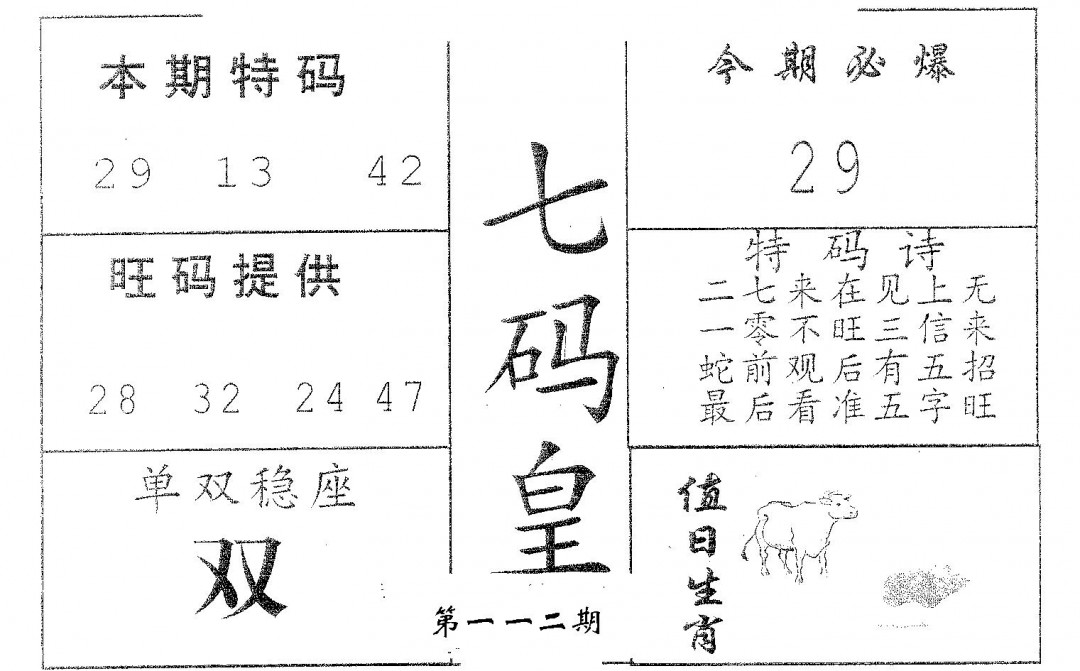 本期特码
29 13 42
旺码提供
28 32 24 47
单双稳座
双
七码皇
第一一二期
今期必爆
29
特码诗
二七来在见上无
一零不旺三信来
蛇前观后有五招
最后看准五字旺
值日生肖